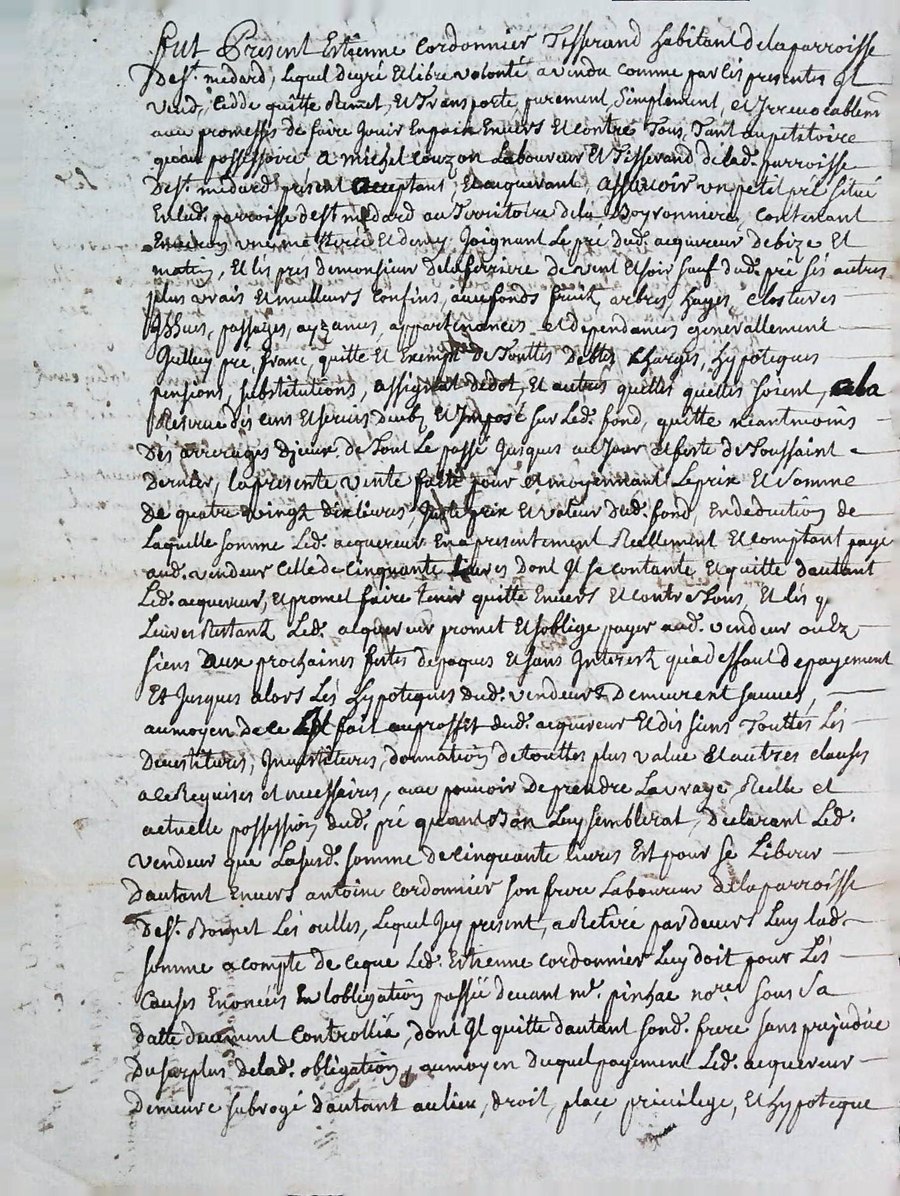 Fut Present Estienne Cordonnier Tisserand habitant de la parroisse
de St. medard, lequel de gré et libre volonté a vendu comme par ces presentes Il
vend, cedde quitte Remet, et Transporte, purement, Simplement, et Irrevocablemt
avec promesses de faire Jouir En paix Envers Et contre Tous, Tant au petitoire
qu'au possessoire a michel couzon Laboureur Et Tisserand de lad. parroisse
de St. medard present acceptant, Et acquerant, assavoir un petit pré situé
En lad. parroisse de St medard au Territoire de la Boyronniere, contenant
Environ une metterée Et demy Joignant Le pré dud. acquereur de bize Et
matin, Et les prés de monsieur de laferriere de vent Et soir sauf dud. pré ses autres
plus vrais Et meilleurs Confins, avec fonds fruitz, arbres, hayes, clostures
Issues, passages, ayzances, appartenances et dependances generallement
Icelluy pré franc, quitte Et Exempt de Touttes dettes Charges, hypoteques
pensions, substitutions, assignat de dot, Et autres quelles quelles soient, a la
Reserve des cens Et servis deubz Et Imposé sur Led. fond, quitte néantmoins
des arrerages d'iceux de Tout Le passé Jusques au Jour et feste de Toussaint
dernier, la presente vente faite pour et moyennant Le prix Et Somme
de quatre vingt dix livres, Juste prix Et valeur dud. fond, En deduction de
Laquelle somme Led. acquereur En a presentement Reellement Et comptant payé
aud. vendeur Celle de Cinquante livres dont Il se contante Et quitte d'autant
Led. acquereur, Et promet faire Tenir quitte Envers Et contre Tous, Et les
Livres Restantz Led. acquereur promet Et s'oblige payer aud. vendeur ou ez
siens aux prochaines festes de paques Et sans Interest qu'a deffaut de payement
Et Jusques alors Les hypoteques dud. vendeur Demeurent sauves,
au moyen de ce Est fait au proffit dud. acquereur Et des siens Touttes Les
Devestitures, Investitures, donnation de touttes plus value Et autres clauses
a ce Requises et necessaires, avec pouvoir De prendre La vraye, Reelle et
actuelle possession dud. pré quand Bon Luy semblerat, declarant Led.
vendeur que La susd. somme de cinquante livres Est pour se Liberer
d'autant Envers antoine Cordonnier son frere Laboureur de la parroisse
de St. Bonnet Les oulles, Lequel Icy present, a Retiré par devers Luy lad.
somme a compte de ce que Led. Estienne cordonnier Luy doit pour Les
Causes Enoncées En lobligation passée devant me. pinhac nore. sous Sa
datte deuement Controllée, dont Il quitte d'autant sond. frere sans prejudice
du surplus de lad. obligation, au moyen duquel payement Led. acquereur
Demeure subrogé d'autant au lieu, droit, place privilege, Et hypoteque